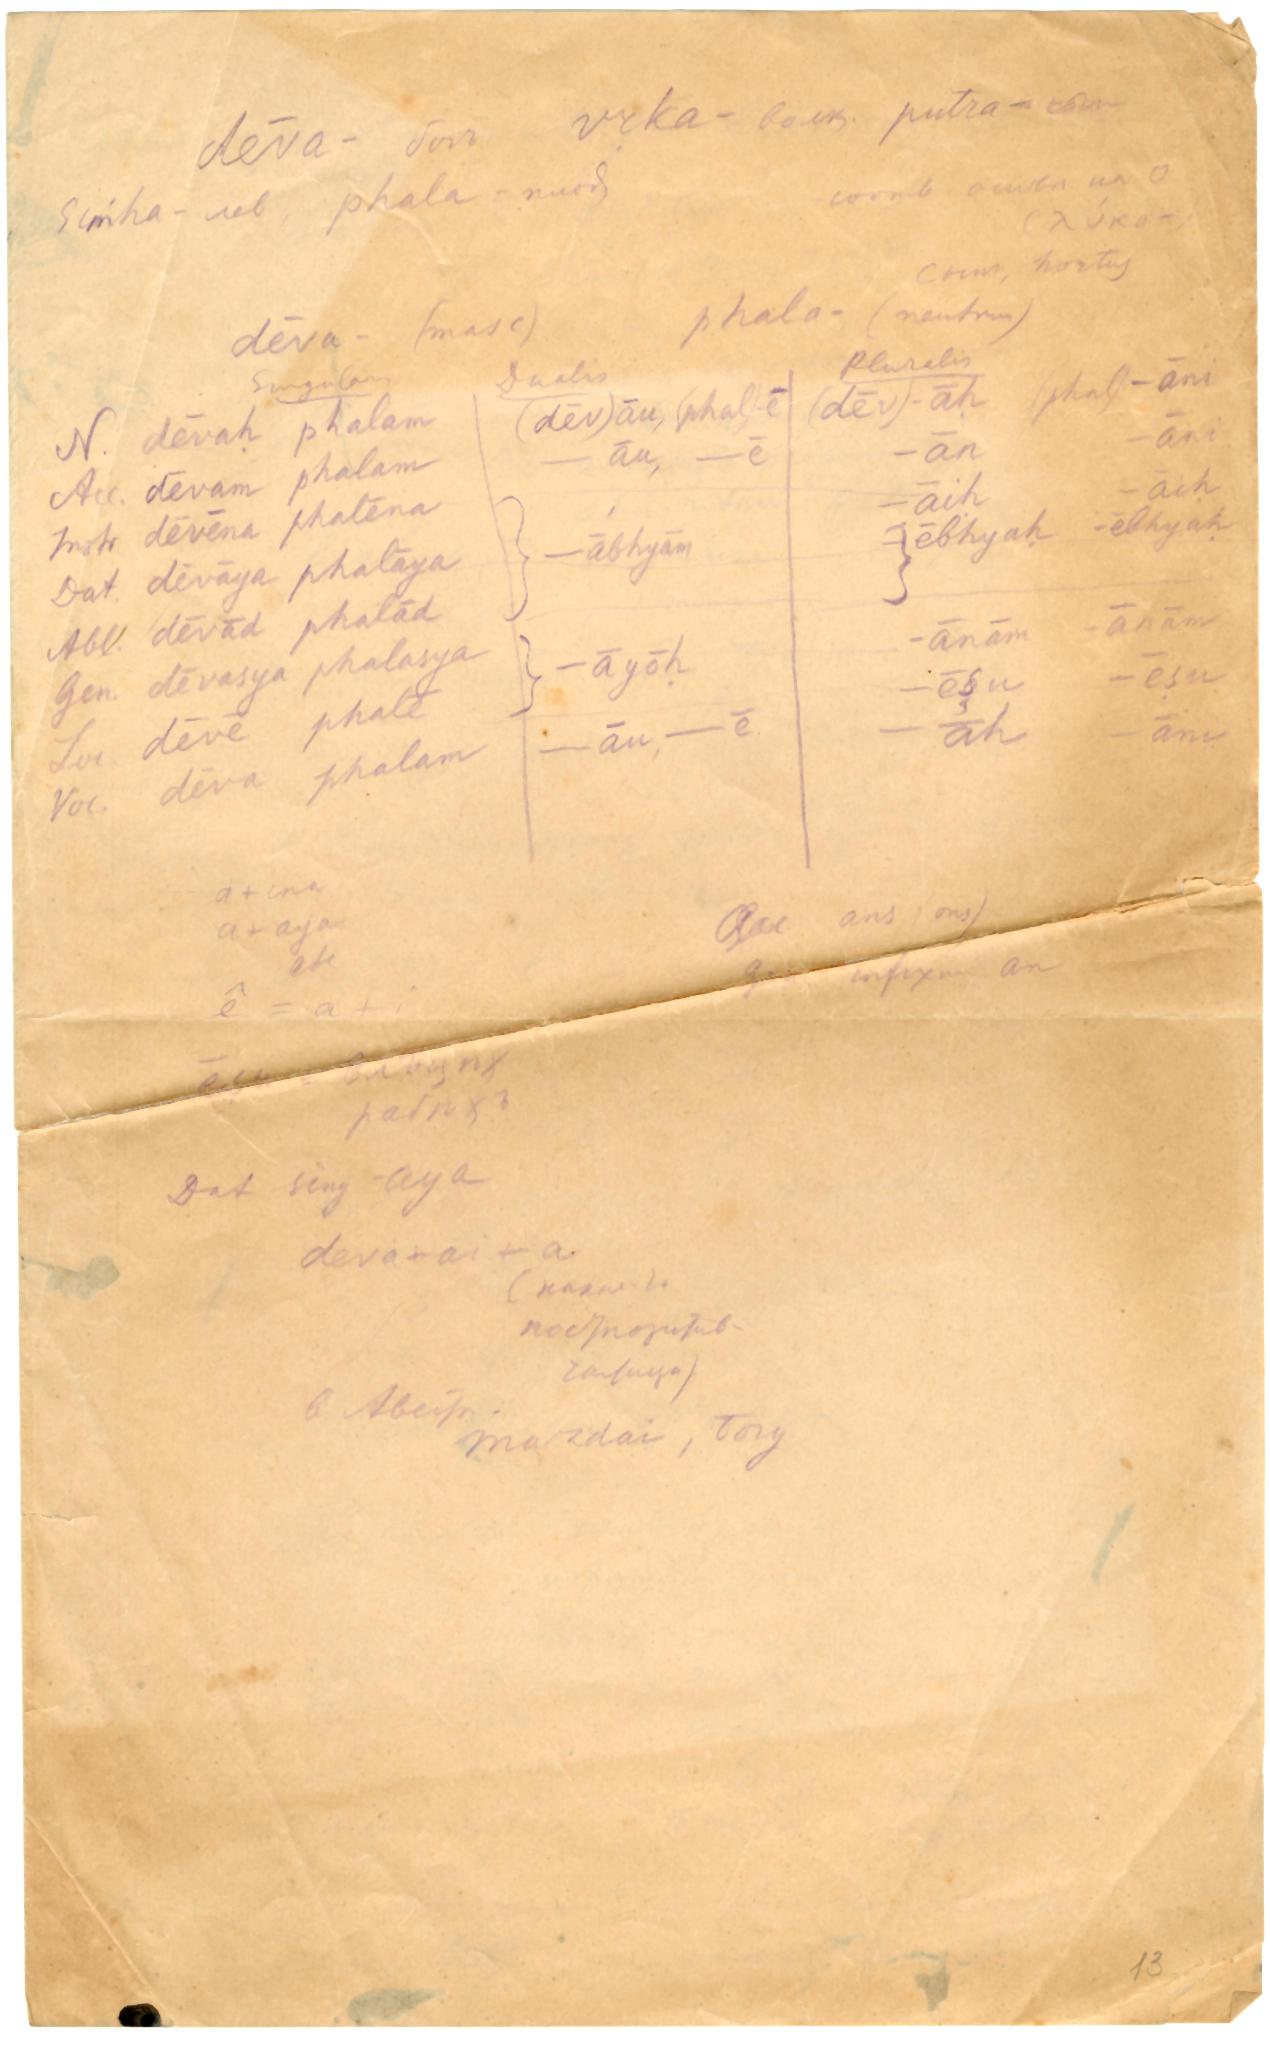 dēva - богъ vṛka - волк. putra - сын
Siṁha - лев, phala - плод
соотв основ на о
(λύκο-)
hortus
dēva - (masc) phala - (neutrum)
Singularis Dualis Pluralis
N. dēvaḥ phalam (dēv)āu, (phal)-ē (dēv)-āḥ (phal)-āni
Acc. dēvam phalam — āu, — ē -ān -āni
Instr dēvēna phalēna -āiḥ -āiḥ
Dat. dēvāya phalāya — ābhyām -ēbhyaḥ -ēbhyaḥ
Abl. dēvād phalād
Gen. dēvasya phalasya -āyōḥ -ānām -ānām
Loc dēvē phalē -ēṣu -ēṣu
Voc. dēva phalam — āu, — ē — āh — āni
a + ina
a + aya
Acc ans (ons)
infixum an
ê = a + i
ēṣu =
рабѣхъ
Dat sing -aya
deva + ai + a
постпозитив-
частица)
в Авест.
mazdai, богу
13